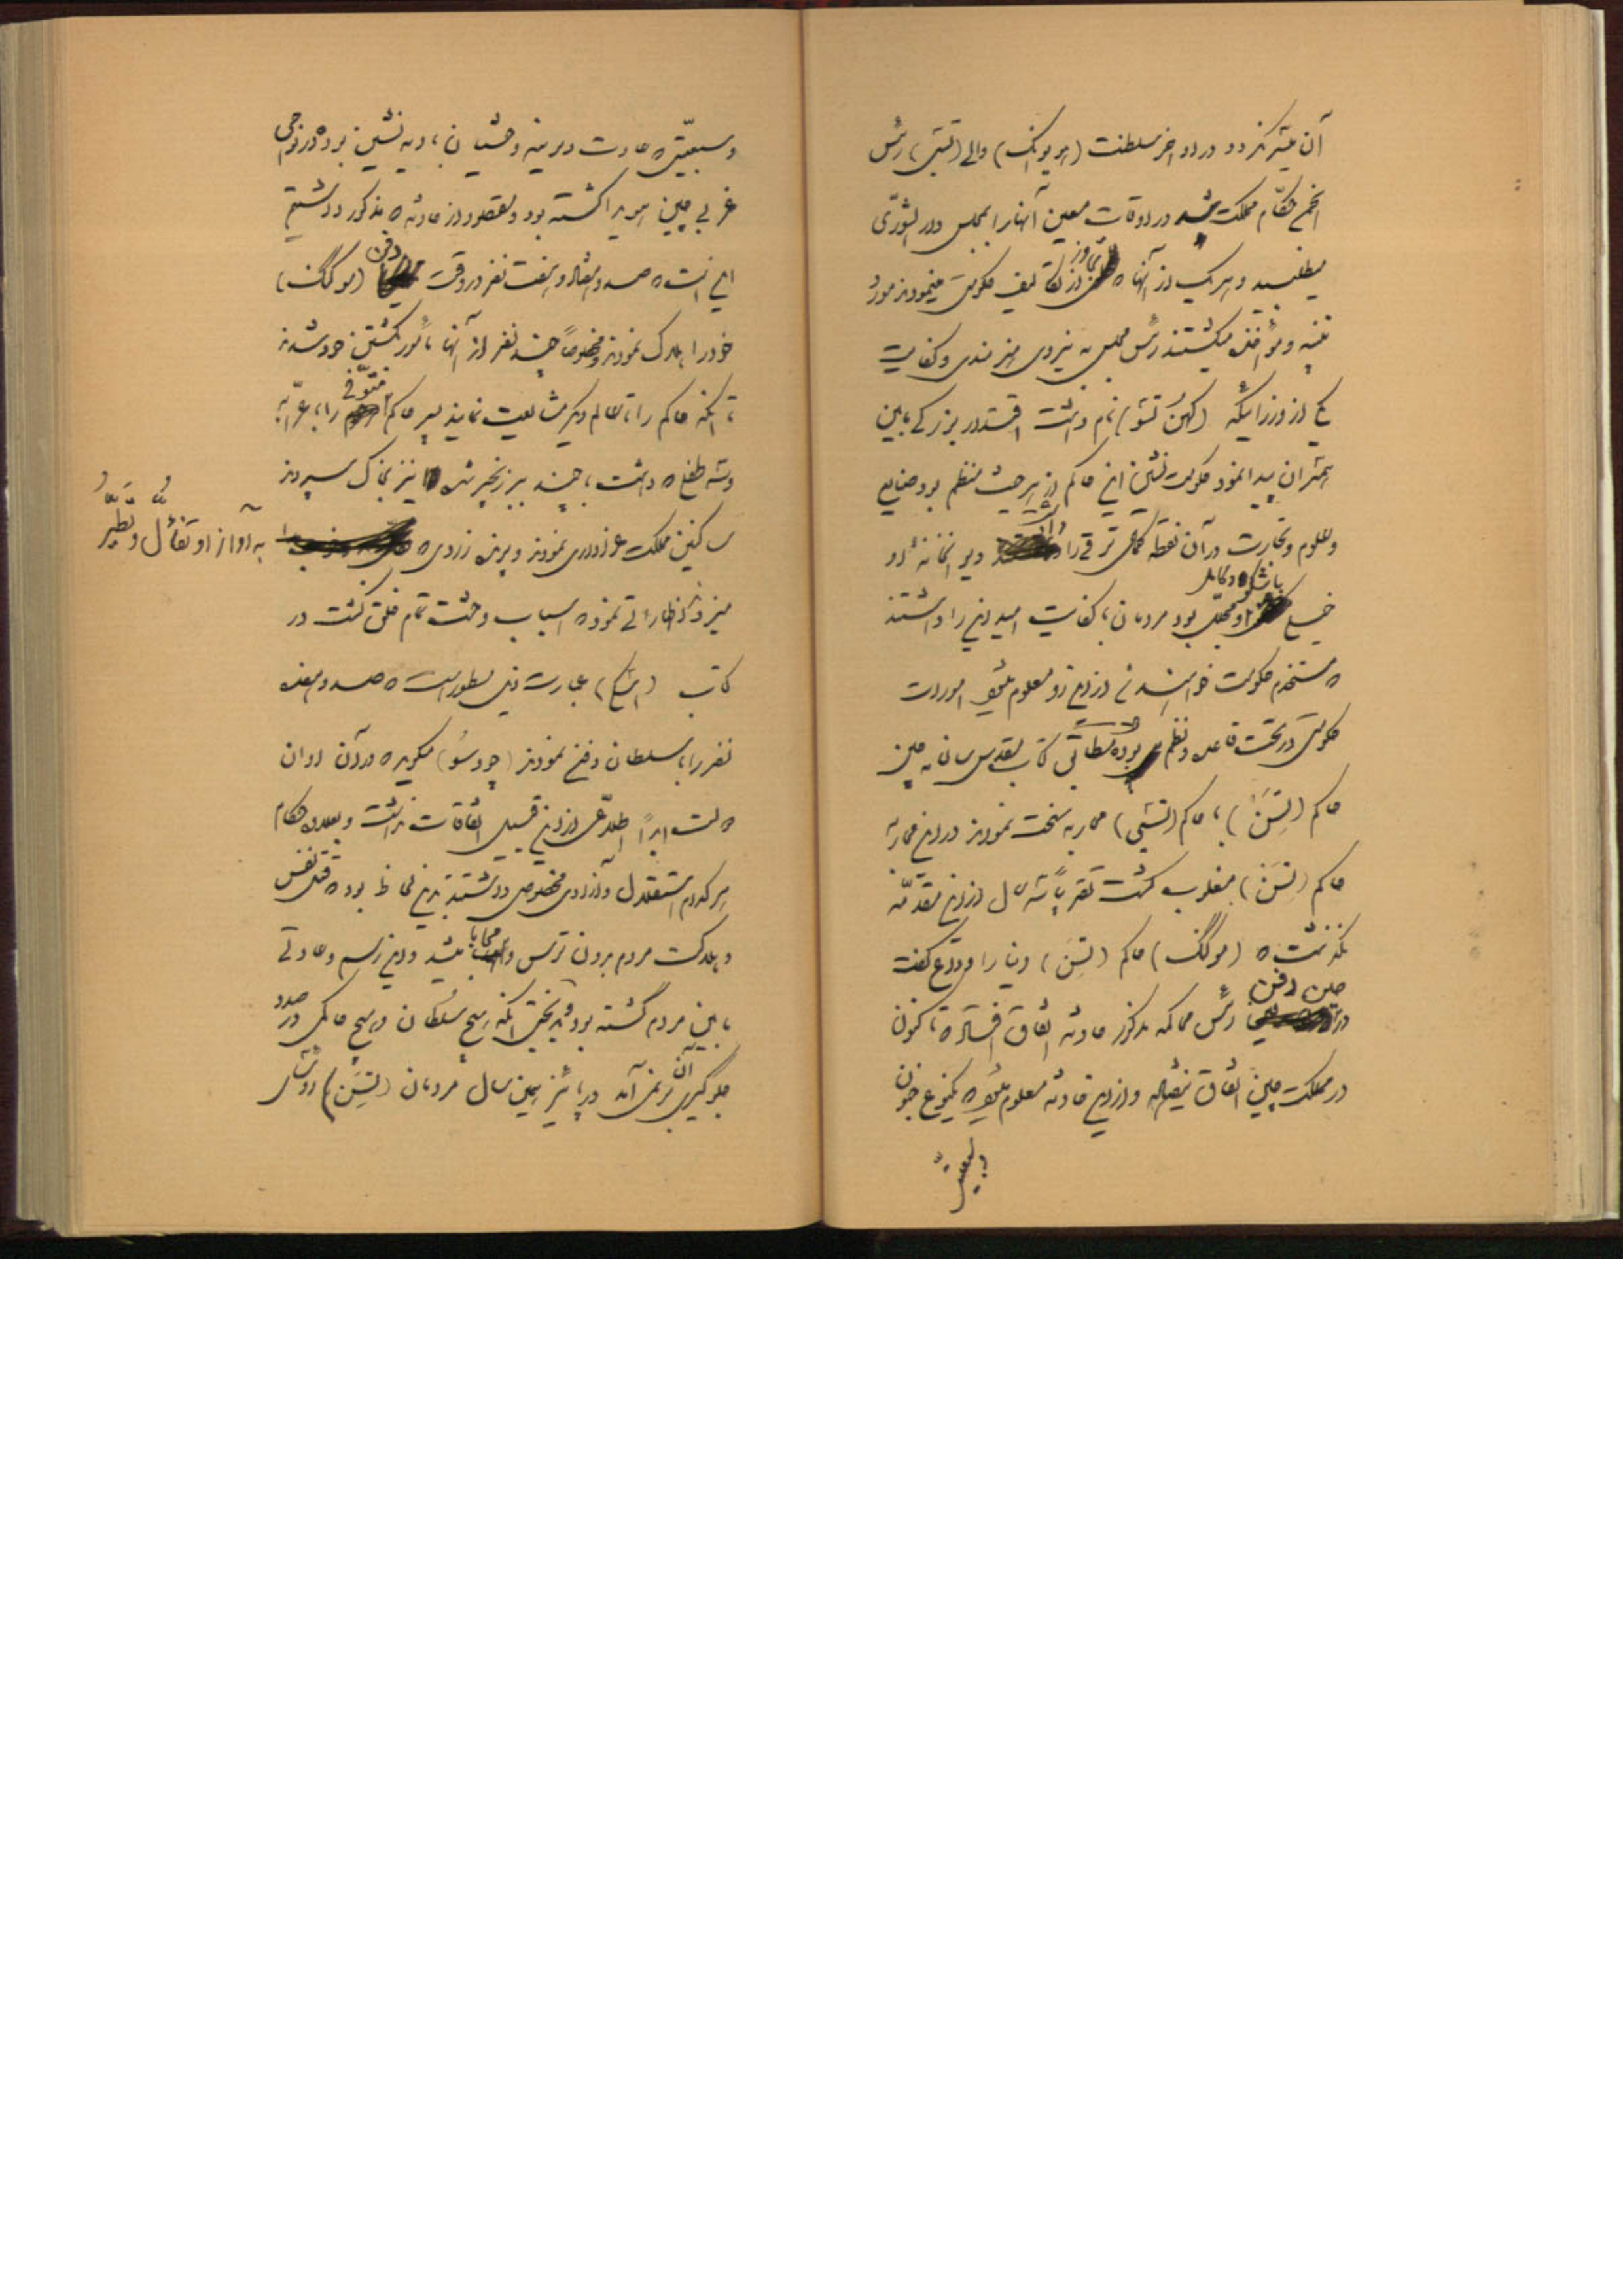 آن بیشتر نکردد در اواخر سلطنت (هو یونک) والی (تسی) رئیس
انجمع حکام مملکت شد در اوقات معین آنها را بمجلس دار الشوری
میطلبید و هر یک از آنها که تجاوز از تکالیف حکومتی مینمودند مورد
تنبیه و مؤاخذه میکشتند رئیس مجلس به نیروی هنرمندی و کفایت
یکی از وزرایکه (کهن تسو) نام داشت اقتدار بزرکی مابین
همسران پیدا نمود حکومت نشین این حاکم از هر حیث منظم بود صنایع
و علوم و تجارت در آن نقطه کمال ترقی را داشت دیوانخانه او
خیلی باشکوه و مجلل بود مردمان با کفایت امید این را داشتند
که مستخدم حکومت خواهند شد از این رو معلوم میشود امورات
حکومتی در تحت قاعده و نظم بوده مطابق کتاب مقدس سالنامه چین
حاکم (تسن) با حاکم (تسی) محاربه سخت نمودند در این محاربه
حاکم (تسن) مغلوب کشت تقریباً سه سال از این مقدمه
نکذشت که (موگنک) حاکم (تسن) دنیا را وداع کفت
در حین دفن رئیس محاکمه مذکور حادثه اتفاق افتاد که تاکنون
در مملکت چین اتفاق نیفتاده و از این حادثه معلوم میشود که یکنوع جنون
و سبعیتی
و سبعیتی که عادت دیرینه وحشیان بادیه نشین بوده در نواحی
غربی چین هویدا کشته بود مقصود از حادثه که مذکور داشتیم
این است که صد و هفتاد و هفت نفر در وقت دفن (موگنک)
خود را هلاک نمودند و مخصوصاً چند نفر از آنها مأمور کشتن خود شدند
تا اینکه حاکم را تا عالم دیکر مشایعت نمایند پسر حاکم متوفی را با عرابه
و سه طفل که داشت با چند ببر زنجیر شده نیز بخاک سپردند
ساکنین مملکت عزاداری نمودند و پرنده زردی که
به آواز او تفأل و تطیر
میزدند اظهاراتی نموده اسباب وحشت تمام خلق کشت در
کتاب (شیکنک) عبارت ذیل مسطور است که صد و هفتاد
نفر را با سلطان دفن نمودند (چودسو) میکوید که در آن اوان
دولت ابداً اطلاعی از این قبیل اتفاقات نداشت و بعلاوه حکام
هر کدام استقلال و آزادی مخصوص داشتند بدین لحاظ بود که قتل نفس
و هلاکت مردم بدون ترس و محابا میشد و این رسم و عادتی
مابین مردم گشته بود و بدبختی اینکه هیچ سلطان و هیچ حاکمی در صدد
جلوگیری آن بر نمی آمد در پائیز همین سال مردمان (تسن) رؤسای